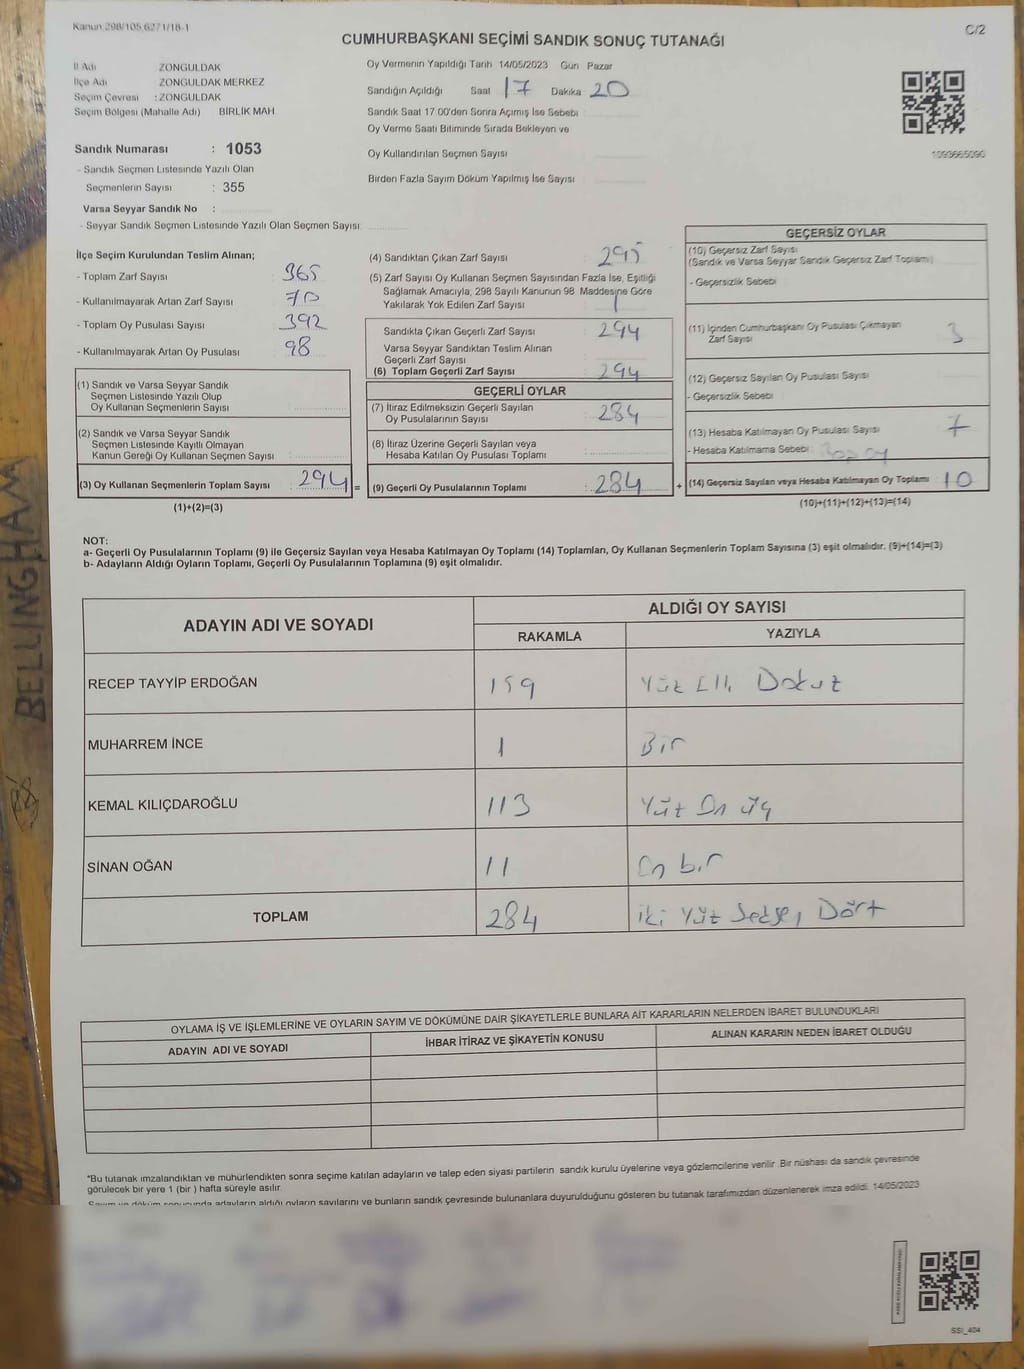 Kanun 298/105,6271/18-1
C/2
CUMHURBAŞKANI SEÇİMİ SANDIK SONUÇ TUTANAĞI
İl Adı ZONGULDAK
İlçe Adı ZONGULDAK MERKEZ
Seçim Çevresi : ZONGULDAK
Seçim Bölgesi (Mahalle Adı) BİRLİK MAH
Sandık Numarası : 1053
- Sandık Seçmen Listesinde Yazılı Olan
Seçmenlerin Sayısı : 355
Varsa Seyyar Sandık No :
- Seyyar Sandık Seçmen Listesinde Yazılı Olan Seçmen Sayısı
Oy Vermenin Yapıldığı Tarih 14/05/2023 Gün Pazar
Sandığın Açıldığı Saat 17 Dakika 20
Sandık Saat 17.00'den Sonra Açımış İse Sebebi
Oy Verme Saati Bitiminde Sırada Bekleyen ve
Oy Kullandırılan Seçmen Sayısı
Birden Fazla Sayım Döküm Yapılmış İse Sayısı
1093665090
İlçe Seçim Kurulundan Teslim Alınan;
- Toplam Zarf Sayısı 365
- Kullanılmayarak Artan Zarf Sayısı 70
- Toplam Oy Pusulası Sayısı 392
- Kullanılmayarak Artan Oy Pusulası 98
(1) Sandık ve Varsa Seyyar Sandık
Seçmen Listesinde Yazılı Olup
Oy Kullanan Seçmenlerin Sayısı
(2) Sandık ve Varsa Seyyar Sandık
Seçmen Listesinde Kayıtlı Olmayan
Kanun Gereği Oy Kullanan Seçmen Sayısı
(3) Oy Kullanan Seçmenlerin Toplam Sayısı : 294 =
(1)+(2)=(3)
(4) Sandıktan Çıkan Zarf Sayısı 295
(5) Zarf Sayısı Oy Kullanan Seçmen Sayısından Fazla İse, Eşitliği
Sağlamak Amacıyla, 298 Sayılı Kanunun 98 Maddesine Göre
Yakılarak Yok Edilen Zarf Sayısı 1
Sandıkta Çıkan Geçerli Zarf Sayısı 294
Varsa Seyyar Sandıktan Teslim Alınan
Geçerli Zarf Sayısı
(6) Toplam Geçerli Zarf Sayısı 294
GEÇERLİ OYLAR
(7) İtiraz Edilmeksizin Geçerli Sayılan
Oy Pusulalarının Sayısı 284
(8) İtiraz Üzerine Geçerli Sayılan veya
Hesaba Katılan Oy Pusulası Toplamı
(9) Geçerli Oy Pusulalarının Toplamı : 284 +
GEÇERSİZ OYLAR
(10) Geçersiz Zarf Sayısı
(Sandık ve Varsa Seyyar Sandık Geçersiz Zarf Toplamı)
- Geçersizlik Sebebi
(11) İçinden Cumhurbaşkanı Oy Pusulası Çıkmayan
Zarf Sayısı 3
(12) Geçersiz Sayılan Oy Pusulası Sayısı
- Geçersizlik Sebebi
(13) Hesaba Katılmayan Oy Pusulası Sayısı 7
- Hesaba Katılmama Sebebi
(14) Geçersiz Sayılan veya Hesaba Katılmayan Oy Toplamı 10
(10)+(11)+(12)+(13)=(14)
NOT:
a- Geçerli Oy Pusulalarının Toplamı (9) ile Geçersiz Sayılan veya Hesaba Katılmayan Oy Toplamı (14) Toplamları, Oy Kullanan Seçmenlerin Toplam Sayısına (3) eşit olmalıdır. (9)+(14)=(3)
b- Adayların Aldığı Oyların Toplamı, Geçerli Oy Pusulalarının Toplamına (9) eşit olmalıdır.
ADAYIN ADI VE SOYADI ALDIĞI OY SAYISI
RAKAMLA YAZIYLA
RECEP TAYYİP ERDOĞAN 159 Yüz Elli Dokuz
MUHARREM İNCE 1 Bir
KEMAL KILIÇDAROĞLU 113 Yüz On üç
SİNAN OĞAN 11 On bir
TOPLAM 284 iki Yüz Seksen Dört
OYLAMA İŞ VE İŞLEMLERİNE VE OYLARIN SAYIM VE DÖKÜMÜNE DAİR ŞİKAYETLERLE BUNLARA AİT KARARLARIN NELERDEN İBARET BULUNDUKLARI
ADAYIN ADI VE SOYADI İHBAR İTİRAZ VE ŞİKAYETİN KONUSU ALINAN KARARIN NEDEN İBARET OLDUĞU
*Bu tutanak imzalandıktan ve mühürlendikten sonra seçime katılan adayların ve talep eden siyasi partilerin sandık kurulu üyelerine veya gözlemcilerine verilir. Bir nüshası da sandık çevresinde
görülecek bir yere 1 (bir) hafta süreyle asılır.
Sayım ve döküm sonucunda adayların aldığı oyların sayılarını ve bunların sandık çevresinde bulunanlara duyurulduğunu gösteren bu tutanak tarafımızdan düzenlenerek imza edildi. 14/05/2023
SSI_404
BELLINGHAM